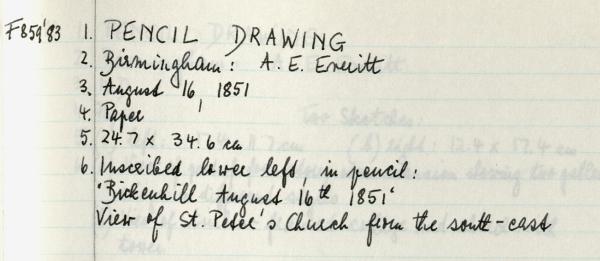 F859'83 1. PENCIL DRAWING
2. Birmingham: A. E. Everitt
3. August 16, 1851
4. Paper
5. 24.7 x 34.6 cm
6. Inscribed lower left, in pencil:
'Bickenhill August 16th 1851'
View of St. Peter's Church from the south-east